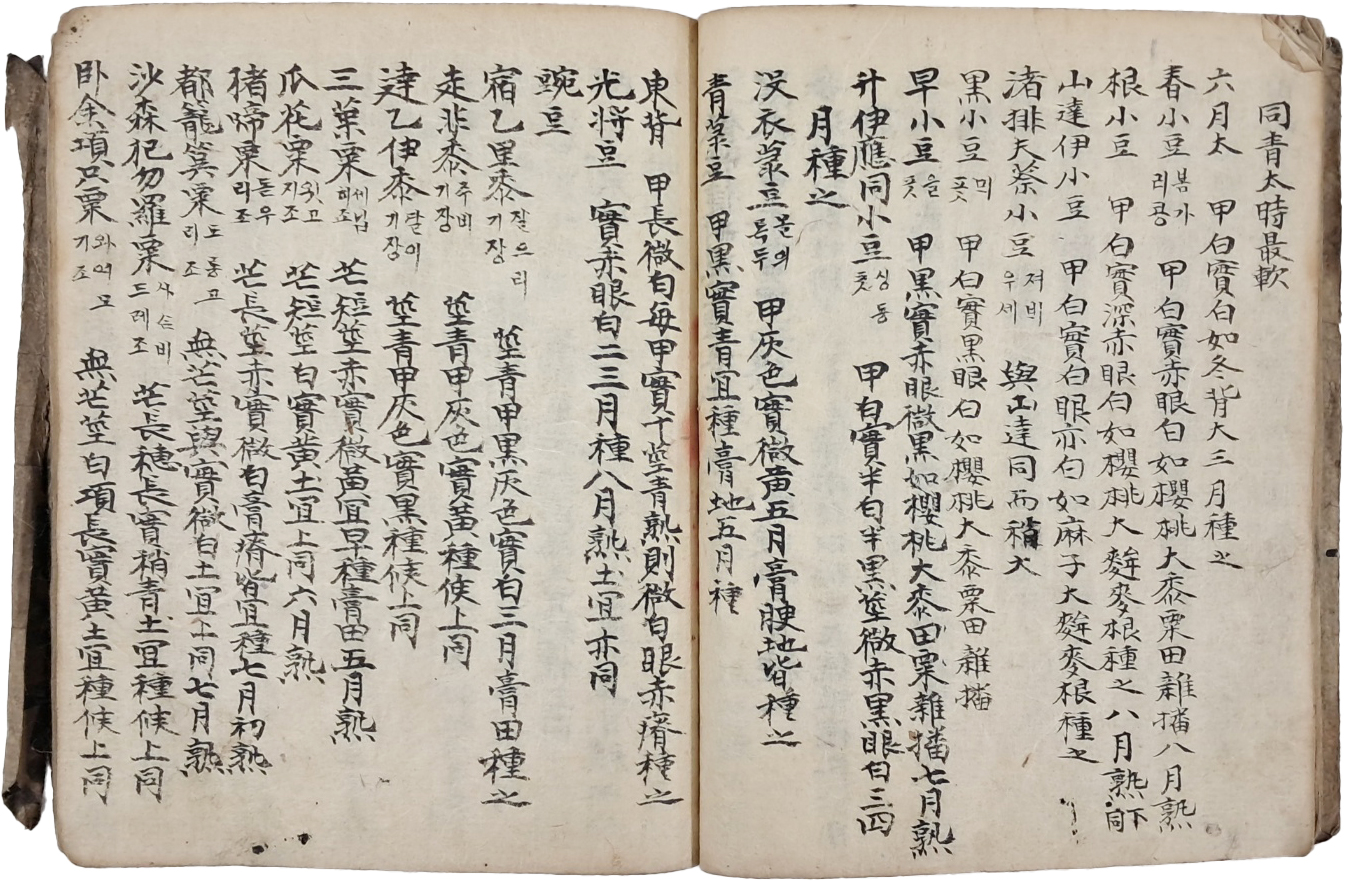 同青太時最軟
六月太 甲白實白如冬背大三月種之
春小豆 봄가리콩 甲白實赤眼白如櫻桃大黍粟田雜播八月熟
根小豆 甲白實深赤眼白如櫻桃大麰麥根種之八月熟下同
山達伊小豆 甲白實白眼亦白如麻子大麰麥根種之
渚排夫蔡小豆 져비우세 與山達同而稍大
黑小豆 믜퐃 甲白實黑眼白如櫻桃大黍粟田雜播
早小豆 을퐃 甲黑實赤眼微黑如櫻桃大黍田粟雜播七月熟
升伊應同小豆 싱동퐃 甲白實半白半黑莖微赤黑眼白三四
月種之
沒衣菉豆 몰의록두 甲灰色實微黃五月膏腴地皆種之
青菉豆 甲黑實青宜種膏地五月種
東背 甲長微白每甲實十莖青熟則微白眼赤瘠種之
光將豆 實赤眼白二三月種八月熟土宜亦同
豌豆
宿乙里黍 잘으리기장 莖青甲黑灰色實白三月膏田種之
走非黍 주비기장 莖青甲灰色實黃種候上同
達乙伊黍 달이기장 莖青甲灰色實黑種候上同
三葉粟 세닙희조 芒短莖赤實微黃宜旱種膏田五月熟
瓜花粟 외고지조 芒短莖白實黃土宜上同六月熟
猪啼粟 돋우리조 芒長莖赤實微白膏瘠皆宜種七月初熟
都籠筽粟 도롱고리조 無芒莖與實微白土宜上同七月熟
沙森犯勿羅粟 사삼비드레조 芒長穗長實稍青土宜種候上同
臥余項只粟 와여모기조 無芒莖白項長實黃土宜種候上同